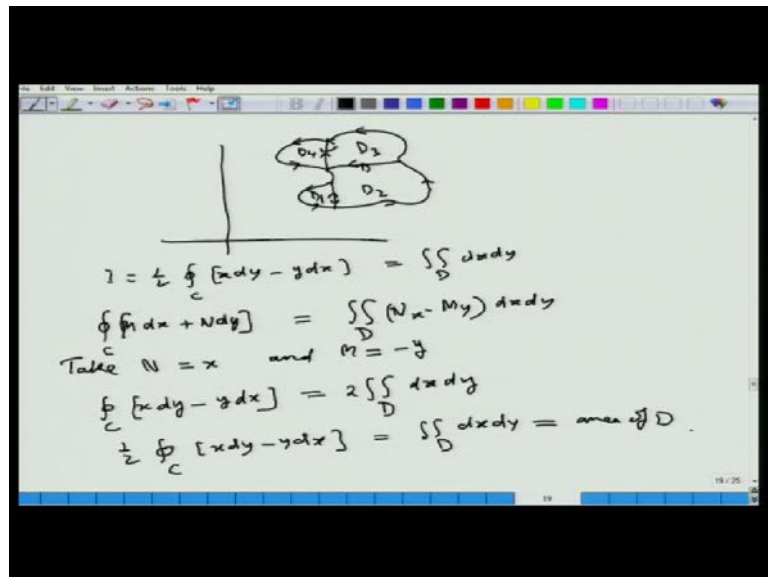 File Edit View Insert Actions Tools Help
D4 D3
D
D1 D2
I = 1/2 ∮_C [xdy - ydx] = ∬_D dxdy
∮_C [M dx + N dy] = ∬_D (Nx - My) dxdy
Take N = x and M = -y
∮_C [xdy - ydx] = 2∬_D dxdy
1/2 ∮_C [xdy - ydx] = ∬_D dxdy = area of D.
19 / 25
19